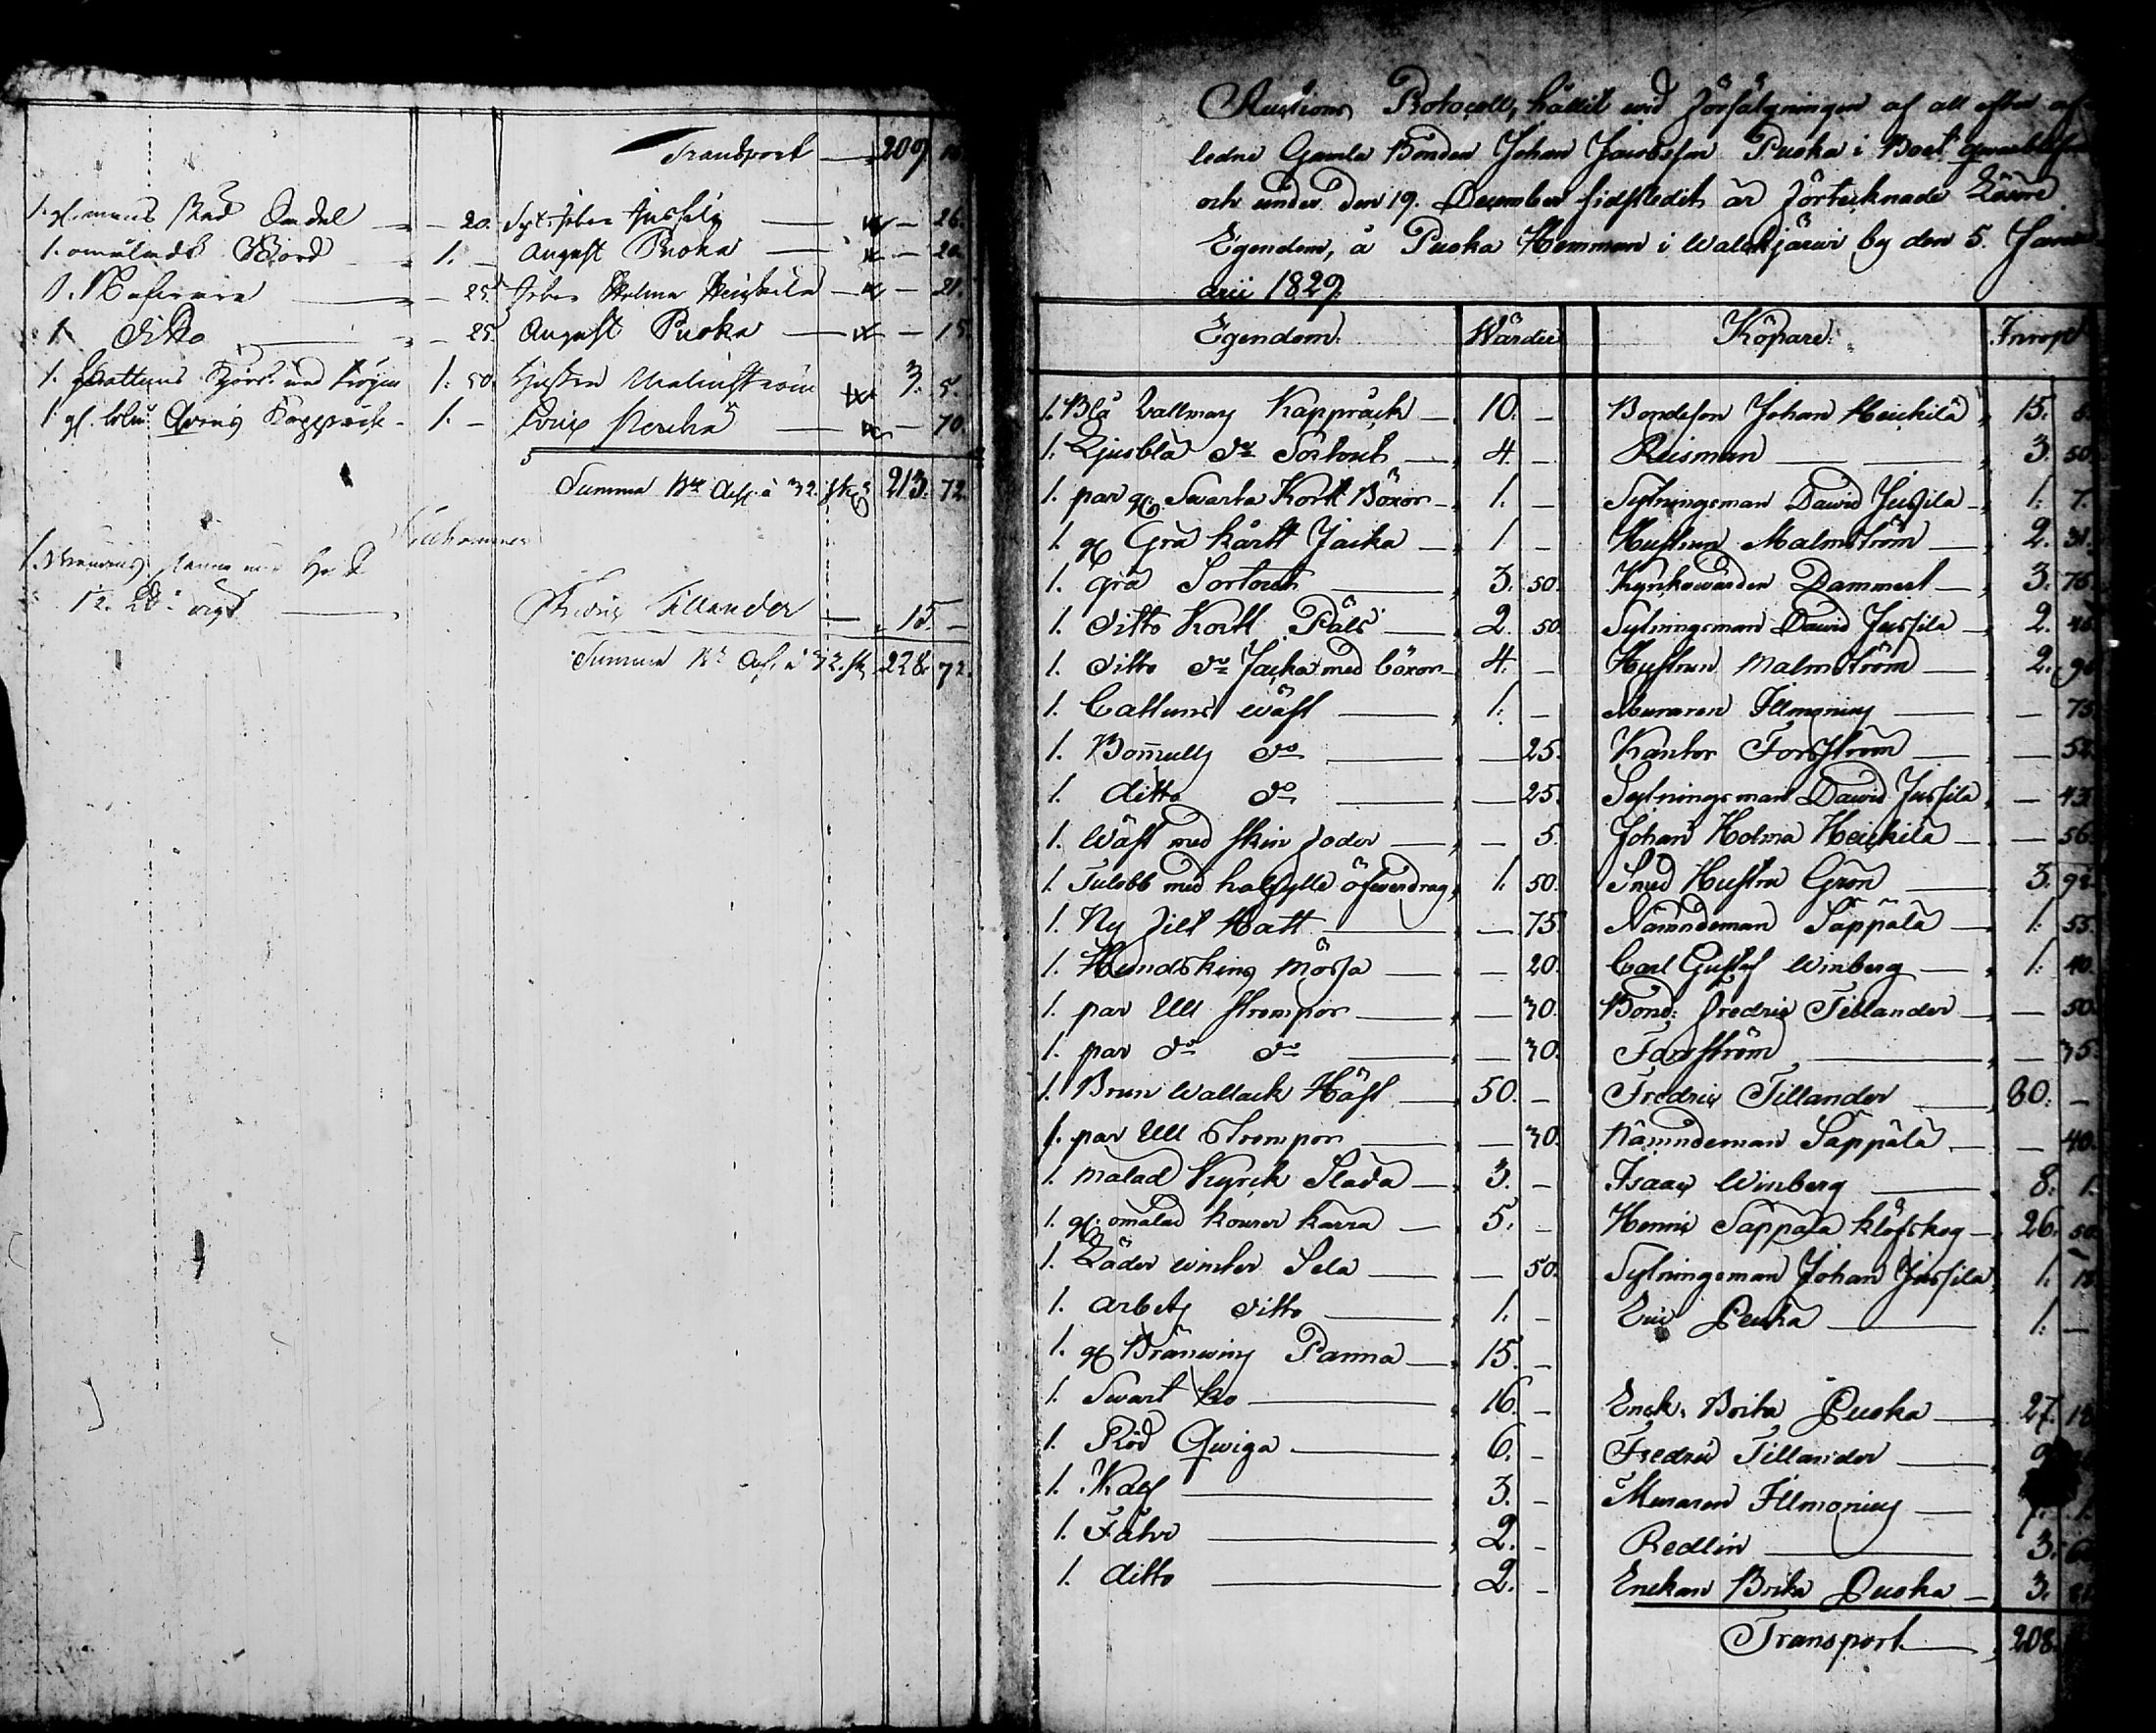 Transport — 209.
1. gl. — 20. — 26.
1. omåladt Bord — 1. — August Puoka — — 20.
1. — 25. Johan Holma Heickilä — — 21.
1. ditto — 25. August Puoka — — 15.
1. Cattuns med tröja 1. 50. Hustru Malmström 3. 5.
1 gl. Kappråck — 1. — — 70.
Summa à 32. 213. 72.
Tillkommer
1. Panna med
12. vigt — Fredric Tillander — 15. —
Summa à 32. 228. 72.
Auctions Protocoll, hållit wid försälgningen af all efter af-
ledne Gamla Bonden Johan Jacobsson Puoka i Boet
och under den 19. December sidstledit år förtecknade Lösöre
Egendom, å Puoka Hemman i Walckjärwi by den 5. Janu-
arii 1829.
Egendom. Wärde Köpare. Inrop
1. Blå Vallmars Kappråck — 10. — Bondeson Johan Heickilä 15. 6.
1. Ljusblå do Sortout — 4. — Reisman — 3. 50.
1. par gl. Swarta Kort Böxor — 1. — Sytningsman David Jussila — 1. 7.
1. gl Grå kårtt Jacka — 1 — Hustrun Malmström — 2. 31.
1. Grå Sortout — 3. 50. Kyrkowärden Dammert — 3. 75.
1. ditto Kortt Päls — 2. 50. Sytningsman David Jussila — 2. 45.
1. ditto do Jacka med böxor — 4. — Hustrun Malmström — 2. 90
1. Cattuns wäst — 1. — Muraren Ilmonius — — 75.
1. Bomulls do — 25. Kantor Forsström — — 52.
1. ditto do — 25. Sytningsman David Jussila — 43.
1. Wäst med skin foder — 5. Johan Holma Heickilä — — 56.
1. Tulubb med halfylle öfwerdrag 1. 50. Smed Hustru Grön — 3. 92.
1. Ny filt Hatt — 75. Nämndeman Säppälä — 1. 55.
1. Hundskins Mössa — 20. Carl Gustaf Winberg — 1. 40.
1. par Ull strumpor — 30. Bond: Fredric Tillander — — 50.
1. par do do — 30. Forsström — — 35.
1. Brun Wallack Häst — 50. — Fredric Tillander — 80. —
1. par Ull Strumpor — 30. Nämndeman Säppälä — — 40.
1. målad Kyrck Släda — 3. — Isaac Winberg — 8. 1.
1. gl. omålad kourer karra — 5. — Henric Säppälä klöfskog — 26. 50.
1. Läder winter Sela — 50. Sytningsman Johan Jussila 1. 12.
1. arbets ditto — 1. — Eric Penka — 1. —
1. gl Bränwins Panna — 15. —
1. Swart Ko — 16. — Enck. Brita Puoka — 27. 12
1. Röd Qwiga — 6. — Fredric Tillander — 9.
1. Kalf — 3. — Muraren Ilmonius —
1. Fåhr — 2. — Redlin — 3.
1. ditto — 2. — Enckan Brita Puoka — 3.
Transport — 208.